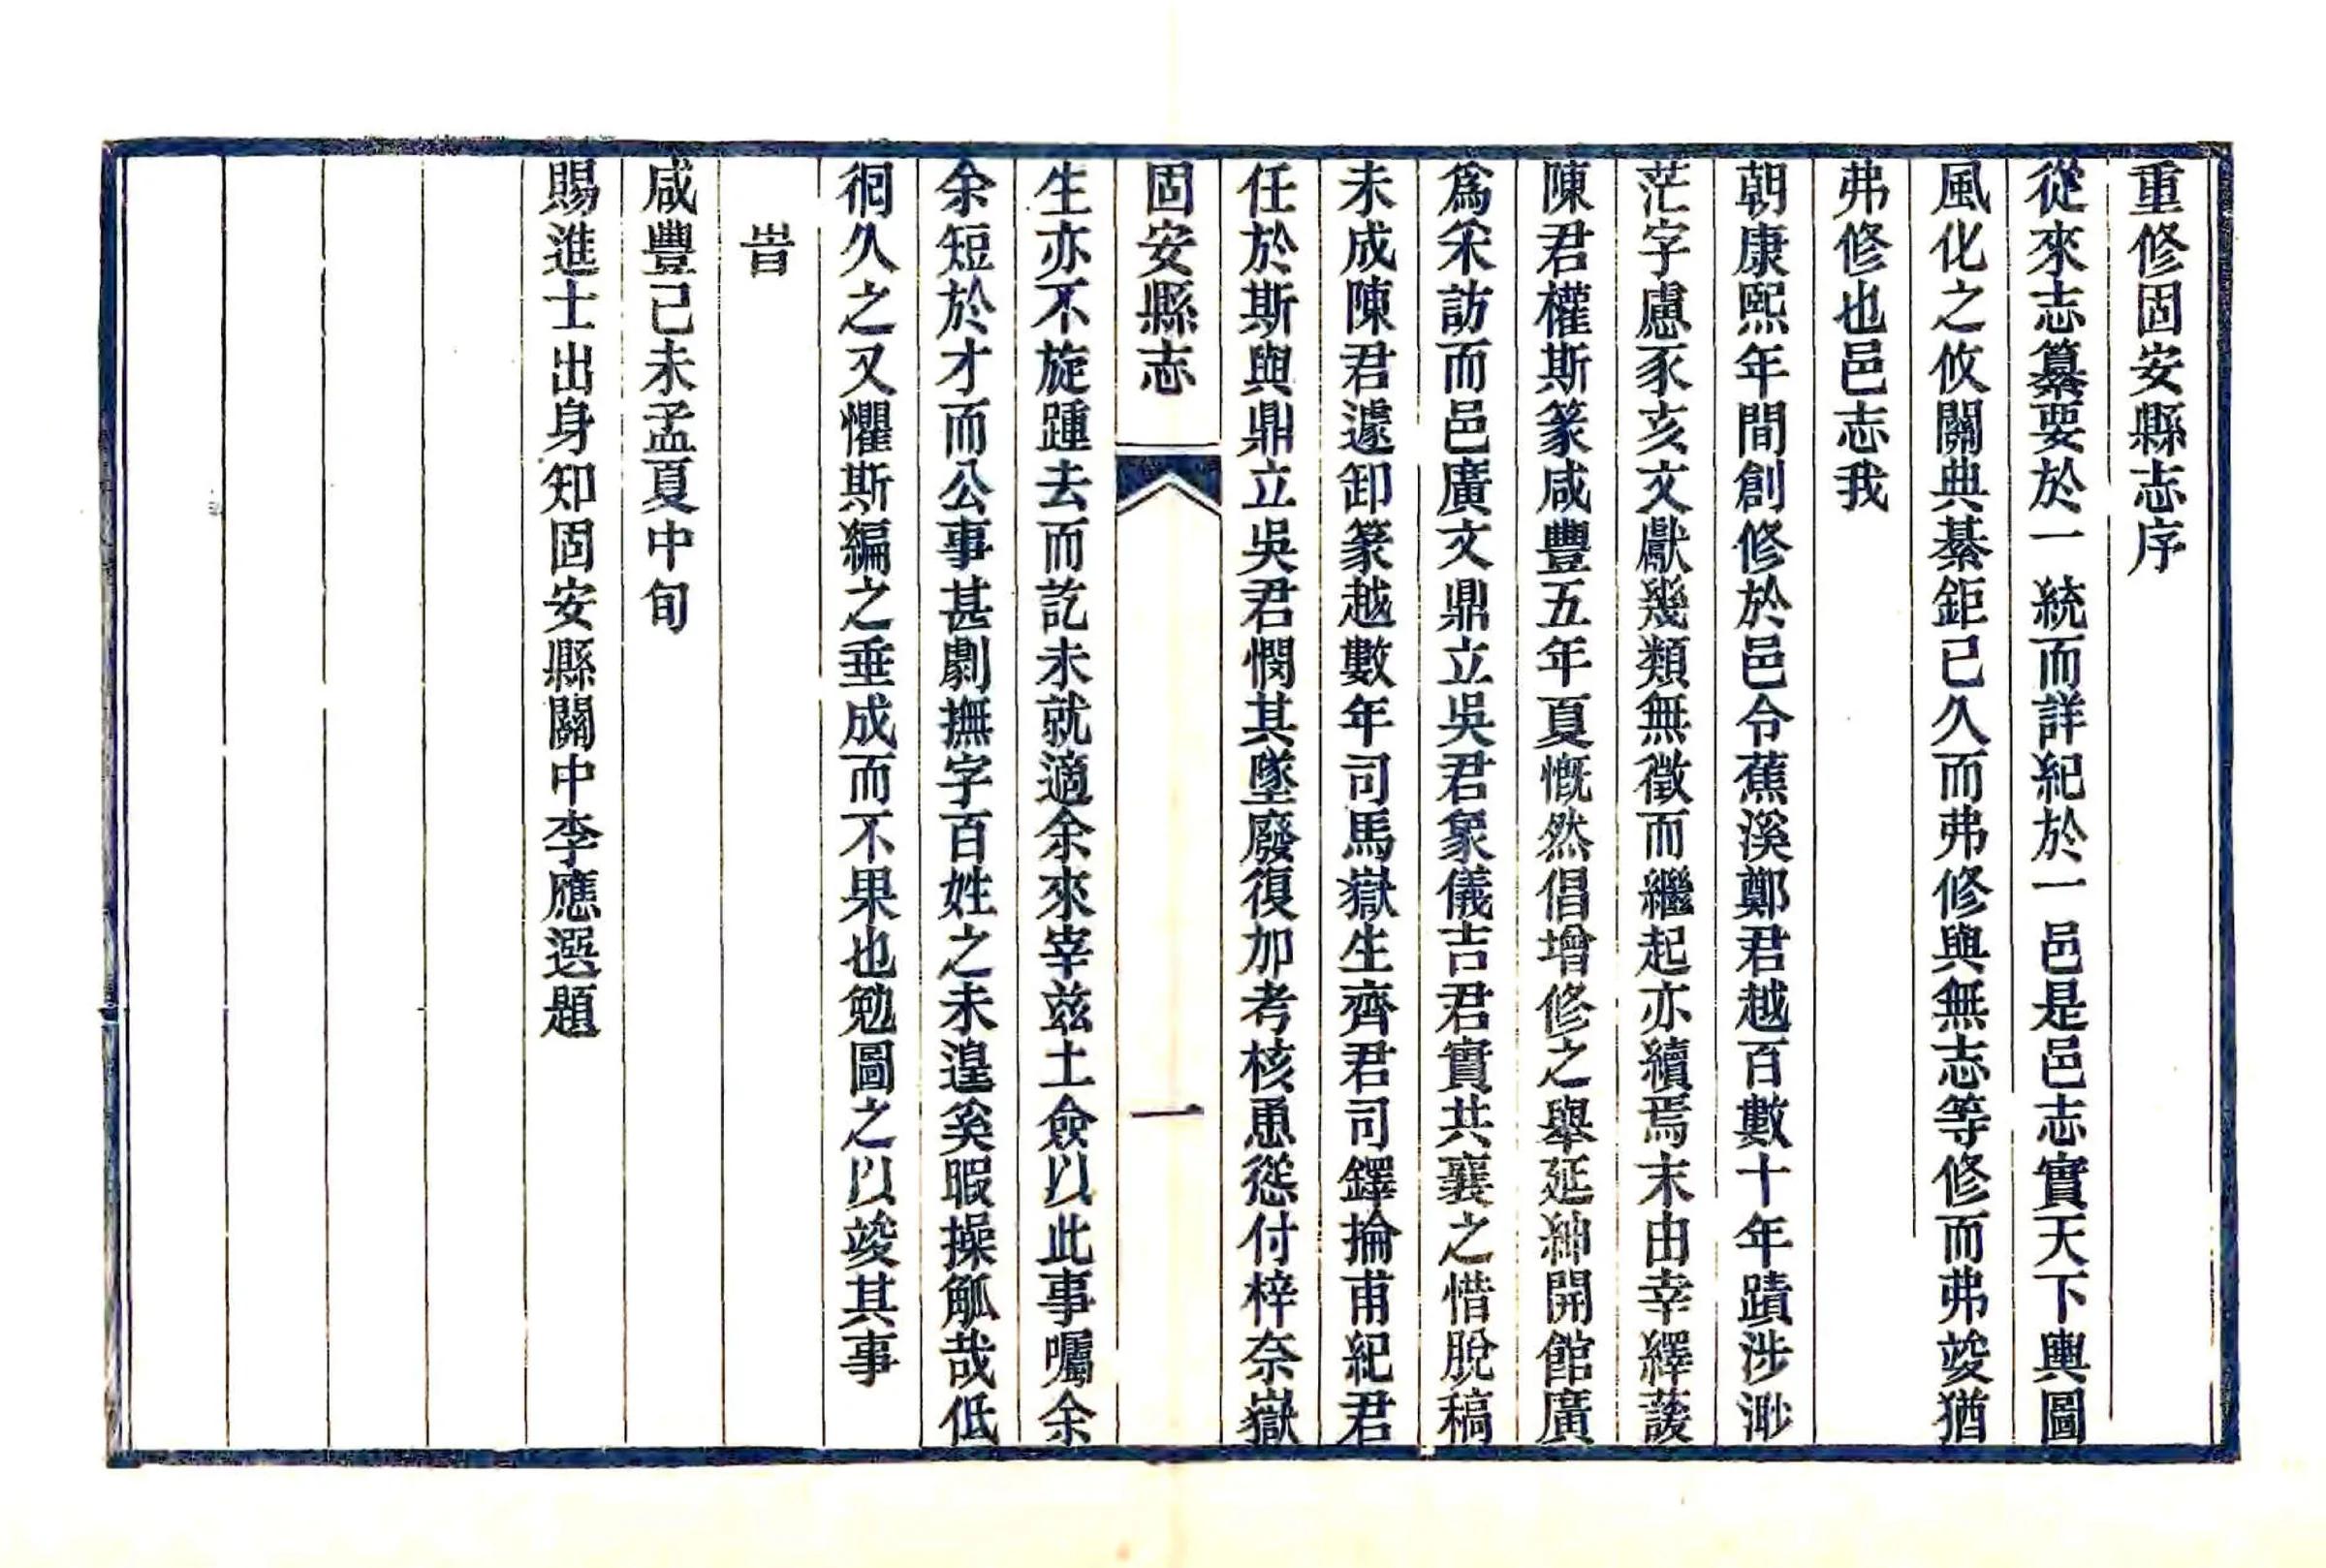 重修固安縣志序
從來志纂要於一統而詳紀於一邑是邑志實天下輿圖
風化之攸關典綦鉅已久而弗修與無志等修而弗竣猶
弗修也邑志我
朝康熙年間創修於邑令蕉溪鄭君越百數十年蹟涉渺
茫字慮豕亥文獻幾類無徵而繼起亦續焉末由幸繹菠
陳君權斯篆咸豐五年夏慨然倡增修之舉延紳開館廣
爲采訪而邑廣文鼎立吳君象儀吉君實共襄之惜脫稿
未成陳君遽卸篆越數年司馬嶽生齊君司鐸掄甫紀君
任於斯與鼎立吳君憫其墜廢復加考核慂慫付梓奈嶽
固安縣志
一
生亦不旋踵去而訖未就適余來宰茲土僉以此事囑余
余短於才而公事甚劇撫字百姓之未遑奚暇操觚哉低
徊久之又懼斯編之垂成而不果也勉圖之以竣其事
旹
咸豐己未孟夏中旬
賜進士出身知固安縣關中李應選題